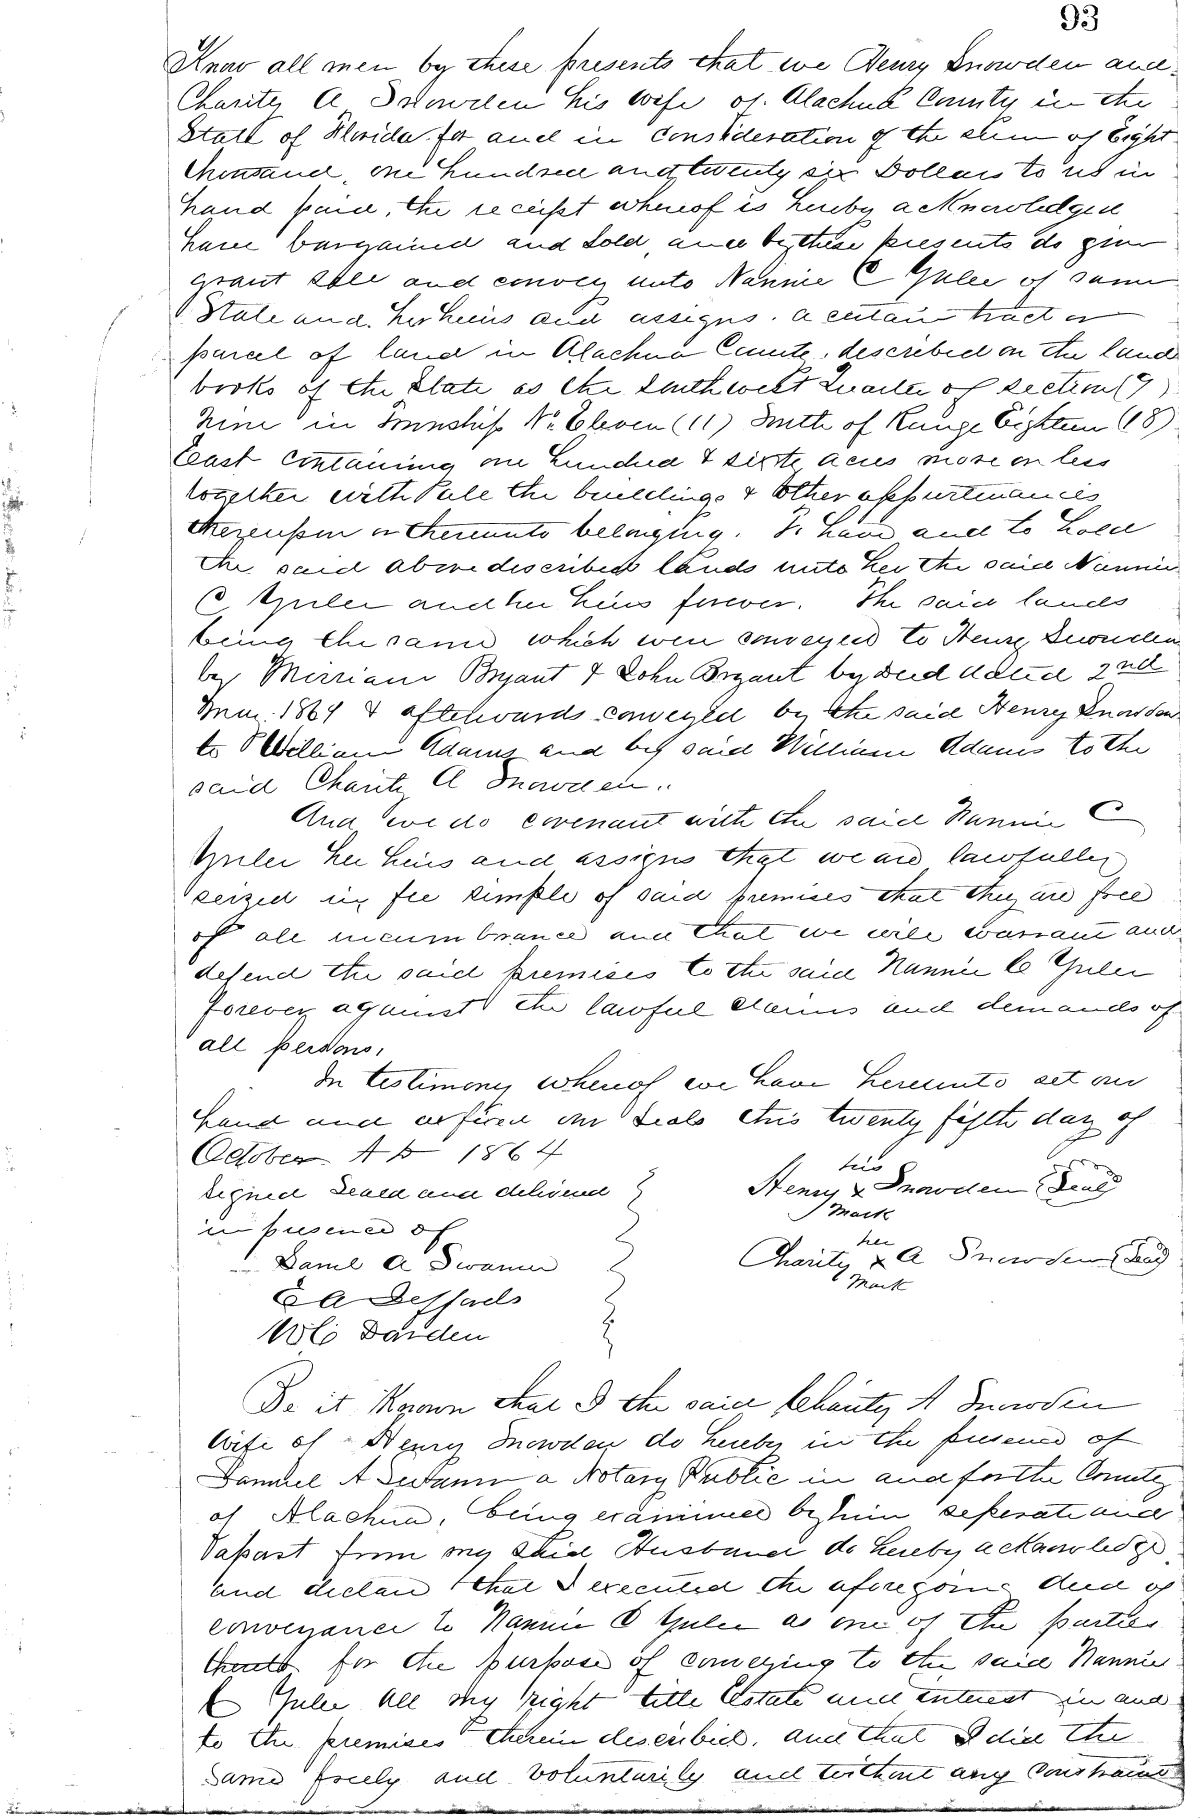 93
Know all men by these presents that we Henry Snowden and
Charity A Snowden his wife of Alachua County in the
State of Florida for and in consideration of the sum of Eight
thousand, one hundred and twenty six Dollars to us in
hand paid, the receipt whereof is hereby acknowledged
have bargained and sold, and by these presents do give
grant sell and convey unto Nannie C Yulee of same
State and her heirs and assigns. a certain tract or
parcel of land in Alachua County, described on the land
books of the State as the Southwest quarter of section (9)
Nine in Township No Eleven (11) South of Range Eighteen (18)
East containing one hundred & sixty acres more or less
together with all the buildings & other appurtenances
thereupon or thereunto belonging. To have and to hold
the said above described lands unto her the said Nannie
C Yulee and her heirs forever. The said lands
being the same which were conveyed to Henry Snowden
by Mirriam Bryant & John Bryant by Deed dated 2nd
1864 & afterwards conveyed by the said Henry Snowden
to William Adams and by said William Adams to the
said Charity A Snowden..
And we do covenant with the said Nannie C
Yulee her heirs and assigns that we are lawfully
seized in fee simple of said premises that they are free
of all incumbrance and that we will warrant and
defend the said premises to the said Nannie C Yulee
forever against the lawful claims and demands of
all persons,
In testimony whereof we have hereunto set our
hand and affixed our seals this twenty fifth day of
October A D 1864
Signed Sealed and delivered
in presence of
Daml A Swann
E A
W C Darden
his
Henry x Snowden (Seal)
Mark
her
Charity x A Snowden (Seal)
Mark
Be it Known that I the said Charity A Snowden
wife of Henry Snowden do hereby in the presence of
Samuel A Swann a Notary Public in and for the County
of Alachua, being examined by him seperate and
apart from my said Husband do hereby acknowledge
and declare that I executed the aforegoing deed of
conveyance to Nannie C Yulee as one of the parties
thereto for the purpose of conveying to the said Nannie
C Yulee all my right title Estate and interest in and
to the premises therein described, and that I did the
same freely and voluntarily and without any constraint